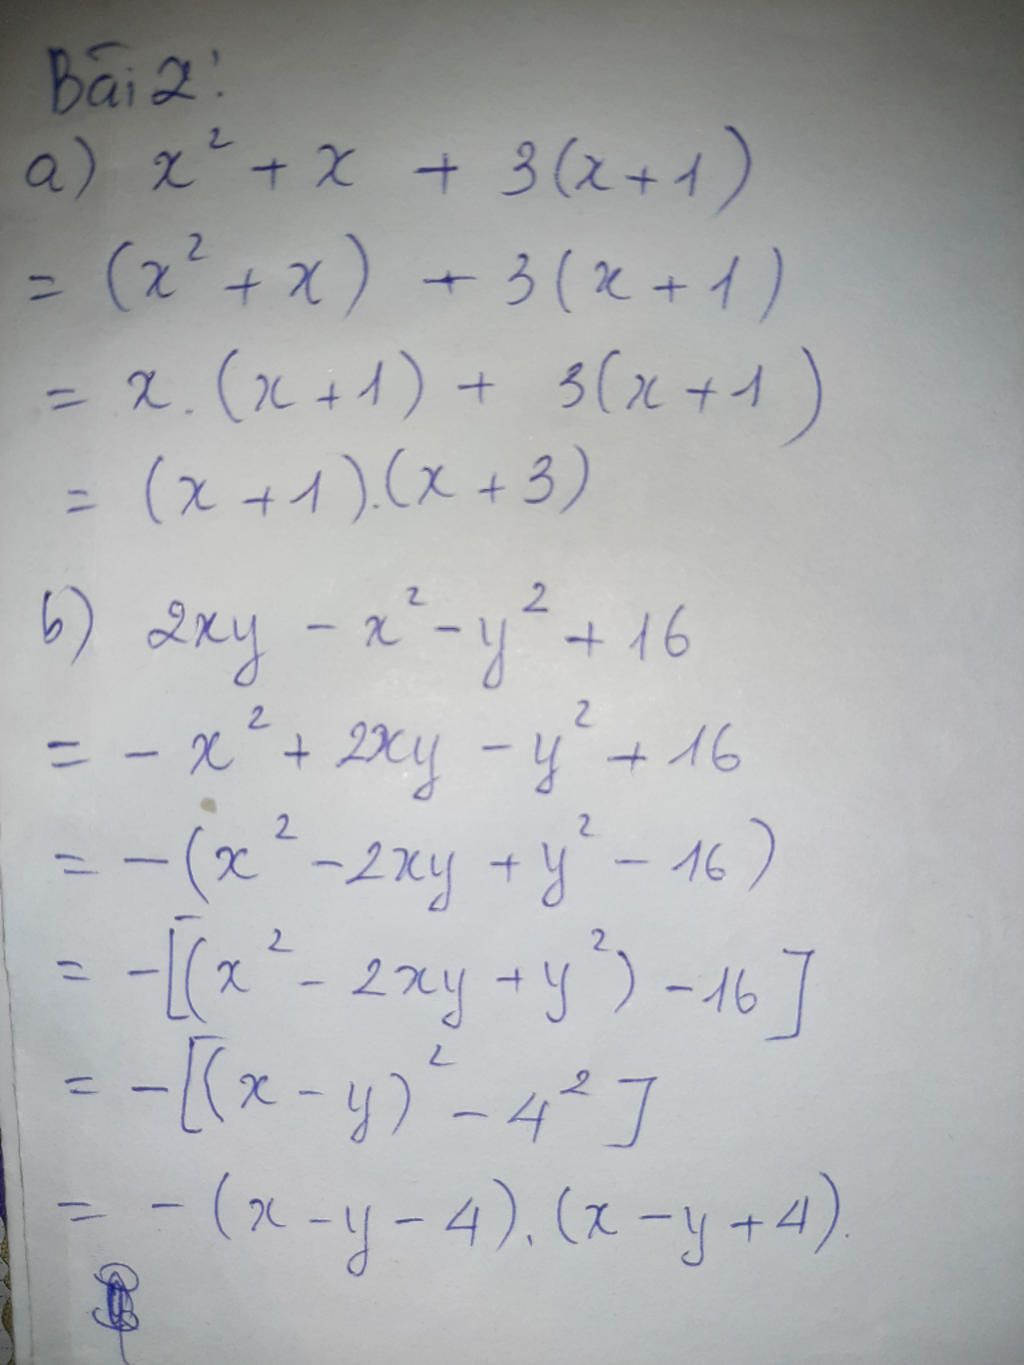 Bài 2:
a) x² + x + 3(x+1)
= (x² + x) + 3(x+1)
= x.(x+1) + 3(x+1)
= (x+1).(x+3)
b) 2xy - x² - y² + 16
= - x² + 2xy - y² + 16
= -(x² - 2xy + y² - 16)
= -[(x² - 2xy + y²) - 16]
= -[(x - y)² - 4²]
= - (x - y - 4).(x - y + 4).